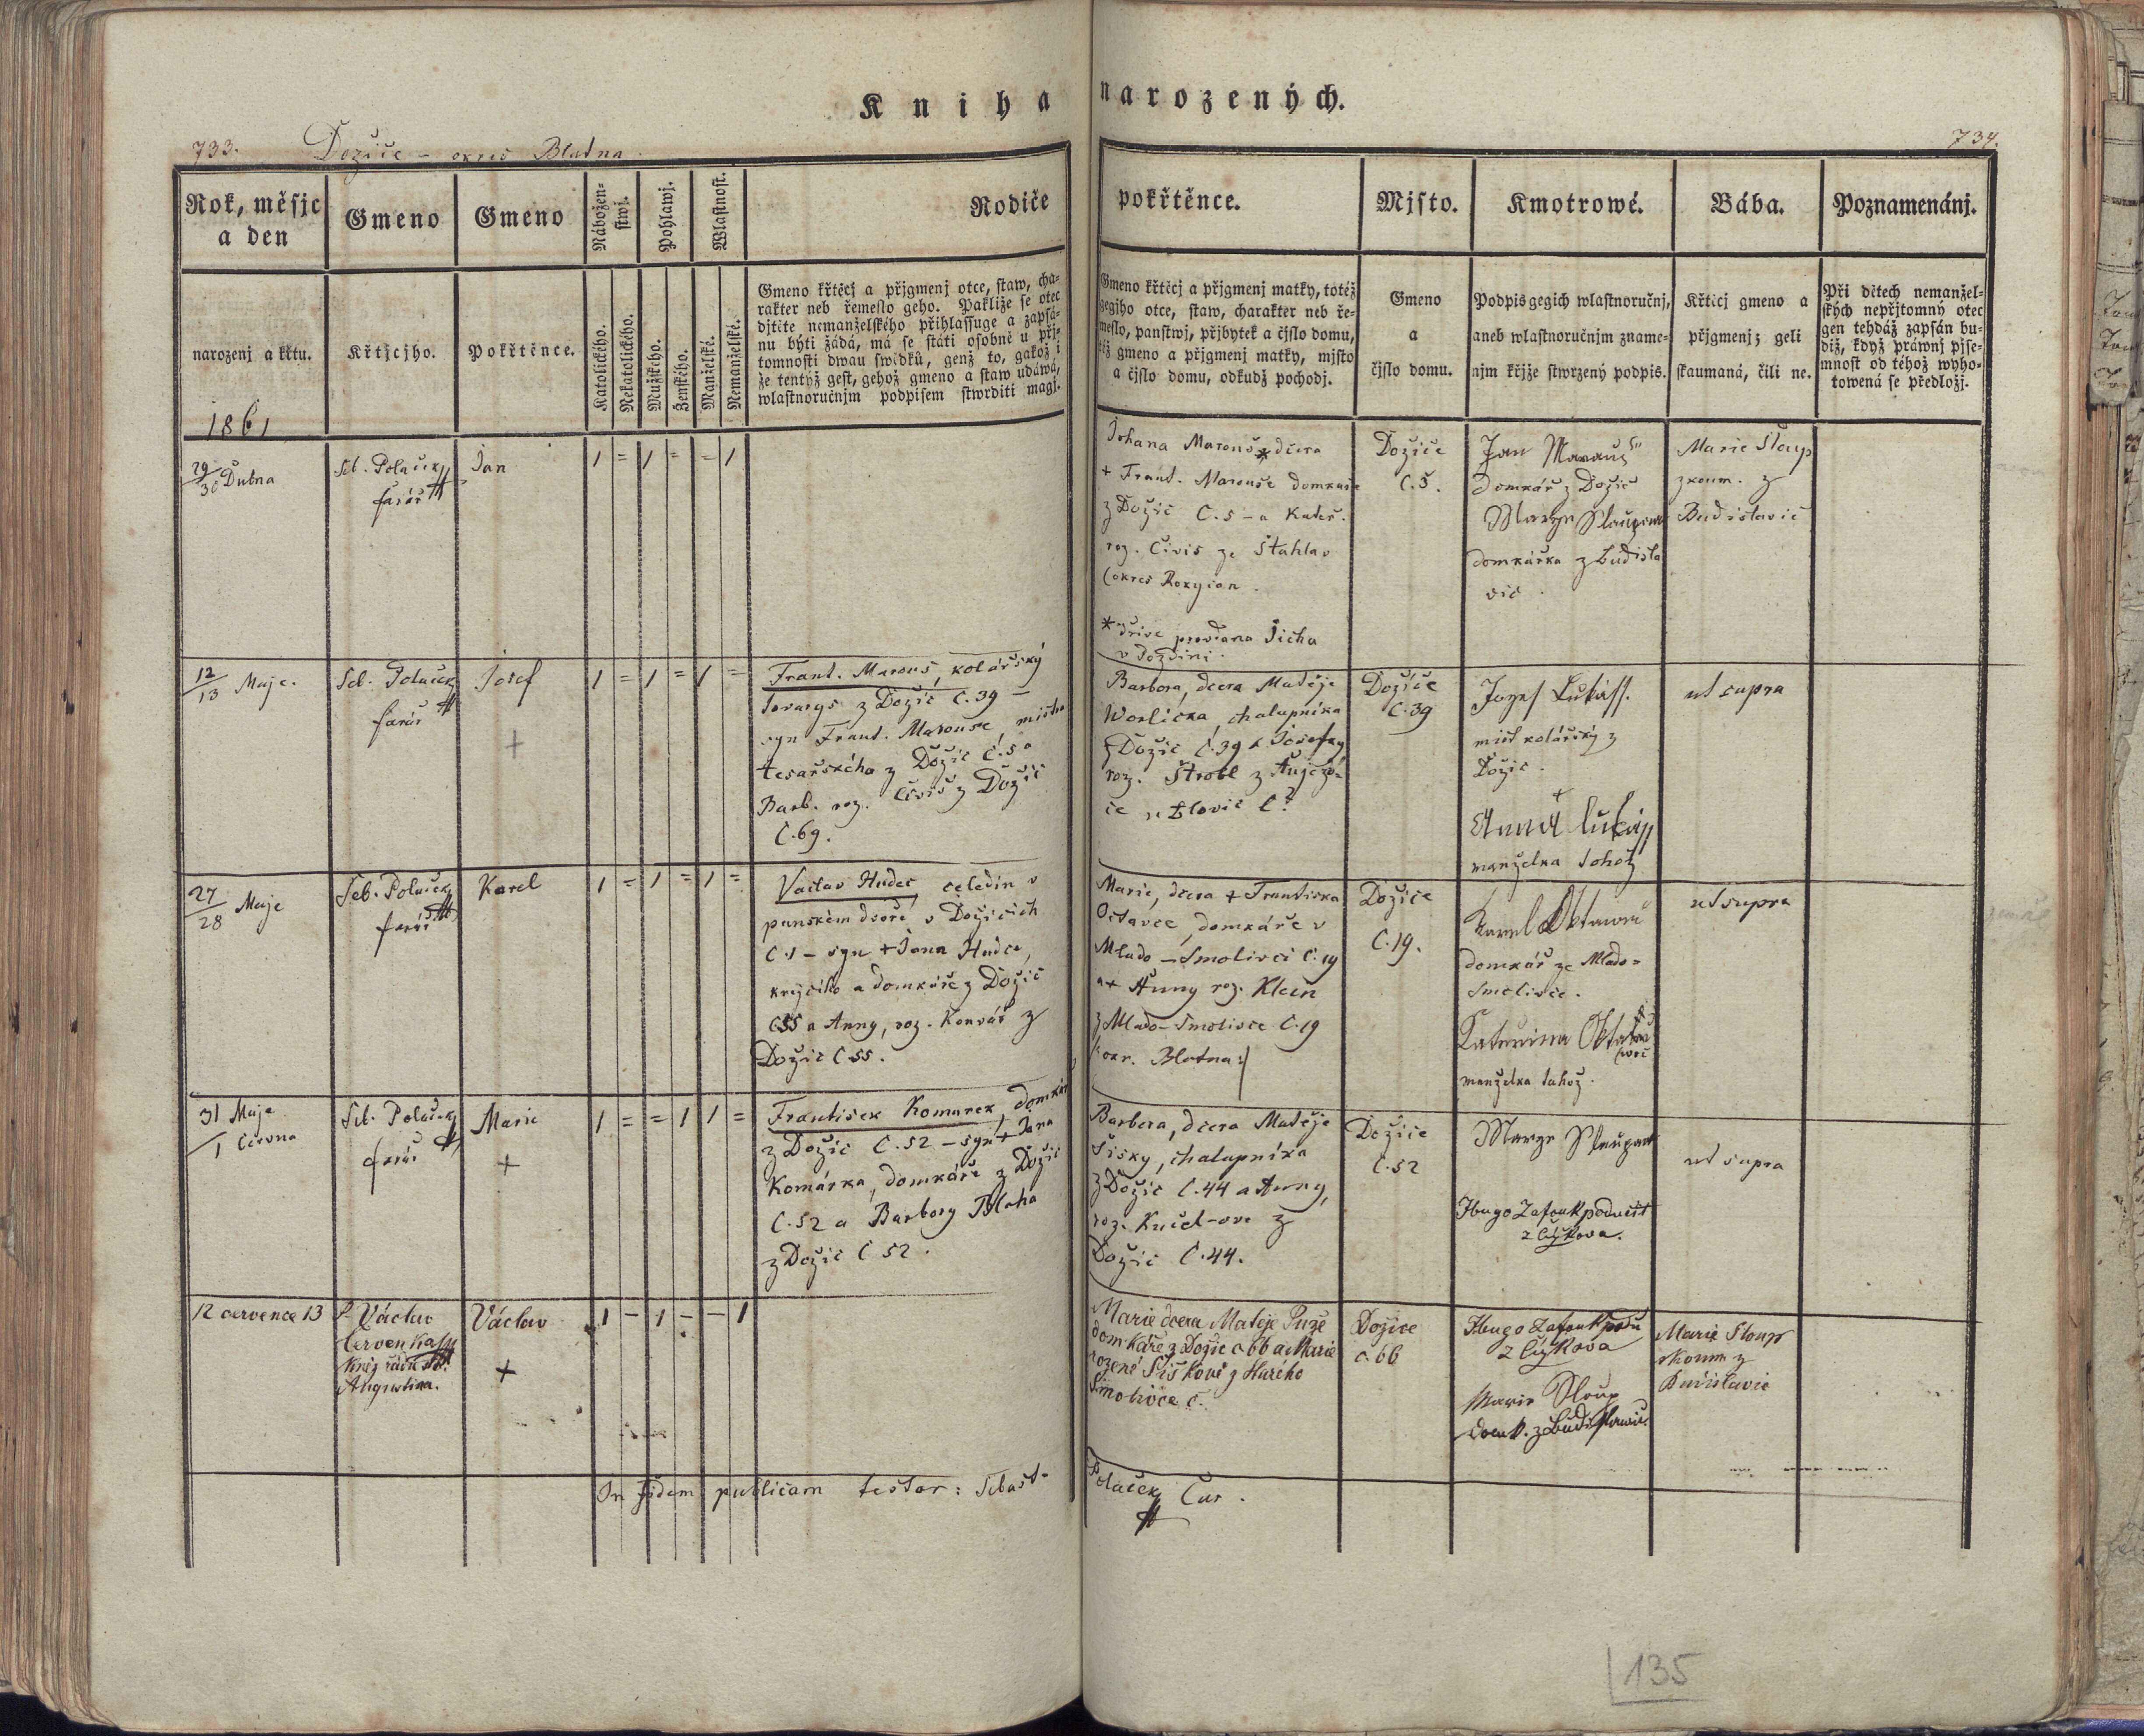 Kniha narozených.
733. Dožice – okres Blatna
734.
Rok, měsjc a den
Gmeno
Gmeno
Náboženstwj.
Pohlawj.
Wlastnost.
Rodiče pokřtěnce.
Mjsto.
Kmotrowé.
Bába.
Poznamenánj.
narozenj a křtu.
křtjcjho.
Pokřtěnce.
Katolického.
Nekatolického.
Mužského.
Ženského.
Manželské.
Nemanželské.
Gmeno křtěcj a přjgmenj otce, staw, cha-
rakter neb řemeslo geho. Pakliže se otec
djtěte nemanželského přihlassuge a zapsá-
nu býti žádá, má se státi osobně u přj-
tomnosti dwau swědků, genž to, gakož i
že tentýž gest, gehož gmeno a staw udáwá,
wlastnoručnjm podpisem stwrditi magj.
Gmeno křtěcj a přjgmenj matky, totéž
gegjho otce, staw, charakter neb ře-
meslo, panstwj, přjbytek a čjslo domu,
též gmeno a přjgmenj matky, mjsto
a čjslo domu, odkudž pochodj.
Gmeno
a
čjslo domu.
Podpis gegich wlastnoručnj,
aneb wlastnoručnjm zname-
njm křjže stwrzený podpis.
Křtěcj gmeno a
přjgmenj; geli
skaumaná, čili ne.
Při dětech nemanžel-
ských nepřjtomný otec
gen tehdáž zapsán bu-
diž, když práwnj pjse-
mnost od téhož wyho-
towená se předložj.
1861
29/30 Dubna
Seb. Polaček
farář
Jan
1 = 1 = = 1
Johana Marouš* dcera
+ Frant. Marouše domkaře
z Dožic C. 5 – a Kateř.
roz. Čiviš ze Štahlav
(okres Rokyčan.
* dříve provdana Jicha
v Vozdini.
Dožice
C. 5.
Jan Marauš
domkář z Dožic
Marye Slaupova
domkářka z Budisla
vic.
Marie Slaup
zkoum. z
Budislavic
12/13 Maje.
Seb. Polaček
farář
Josef
+
1 = 1 = 1 =
Frant. Marouš, kolářský
tovaryš z Dožic C. 39 –
syn Frant. Marouše, mistra
tesařského z Dožic C. 5 a
Barb. roz. Čiviš z Dožic
C. 69.
Barbora, dcera Matěje
Worlička, chalupnika
z Dožic C. 39 a Josefky
roz. Štrobl z
C?
Dožice
C. 39
Jozef Lukáss.
mistr kolářský z
Dožic.
+
Anna Lukáss
manželka tohož
ut supra
27/28 Maje
Seb. Polaček
farář
Karel
1 = 1 = 1 =
Vaclav Hudec, čeledin v
panském dvoře v Dožicích
C. 1 – syn + Jana Hudce,
krejčího a domkáře z Dožic
C 55 a Anny, roz. Konvář z
Dožic C 55.
Marie, dcera + Frantiska
Octavce, domkáře v
Mlado-Smolivci C. 19
a + Anny roz. Klein
z Mlado-Smolivce C. 19
(: okr. Blatna :)
Dožice
C. 19.
Karel Oktawec
domkář ze Mlado=
Smolivce.
Katerina Oktawcowa
manželka tahož.
ut supra
31 Maje
/1 Června
Seb. Polaček
farář
Marie
+
1 = = 1 1 =
František Komarek, domkář
z Dožic C. 52 – syn + Jana
Komárka, domkáře z Dožic
C. 52 a Barbory Blaha
z Dožic C 52.
Barbora, dcera Matěje
Šišky, chalupníka
z Dožic C. 44 a Anny,
roz. Kučel-ove z
Dožic C. 44.
Dožice
C. 52
Marye Slaupova
Hugo Zafouk podučit
z Čížkova.
ut supra
12 července 13
P. Václav
Červenka
kněz řádu Sv.
Augustina.
Václav
+
1 – 1 – – 1
Marie dcera Matěje Puze
domkáře z Dožic č. 66 a Marie
rozené Šiškové z Starého
Smolivce č.
Dožice
č. 66
Hugo Zafouk podu
z Čížkova
Marie Sloup
domk. z Budislawic.
Marie Sloup
skoum. z
Budislavic
In fidem publicam testor: Sebast. Polaček Cur.
135